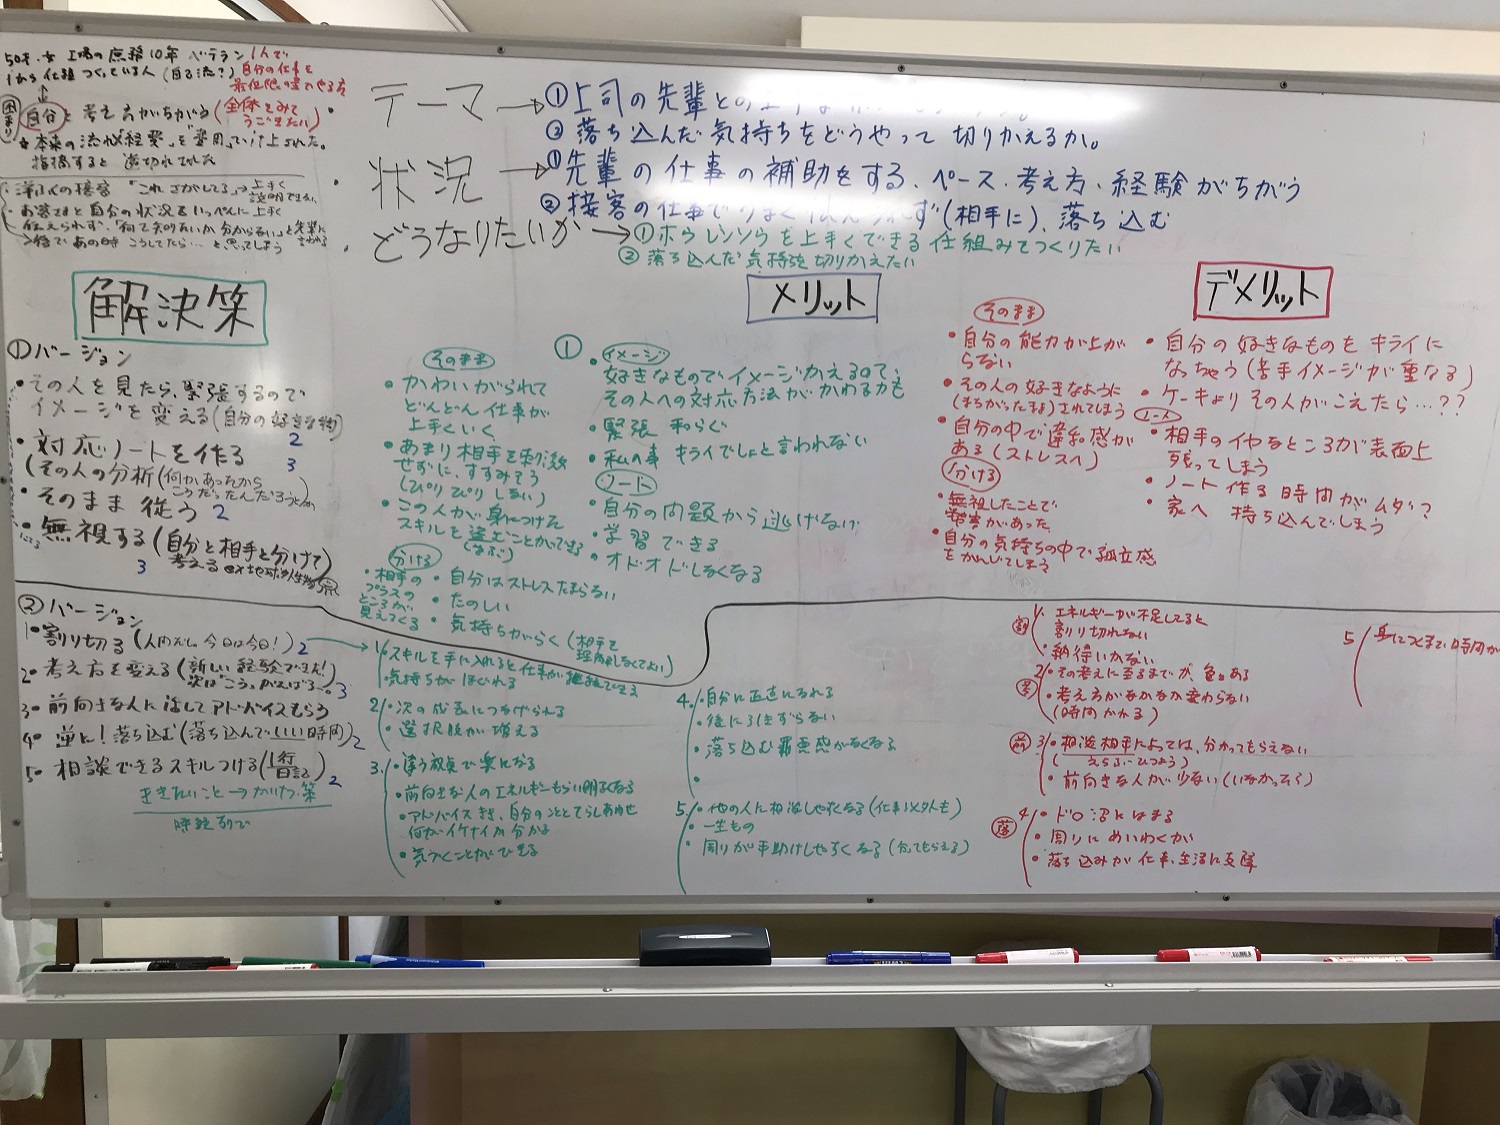 50才.女 工場の庶務10年 ベテラン 1人で
1から仕組つくっている人(自己流?) 自分の仕事を
最低限の量でやる方
困まり
自分と考え方がちがう(全体をみて
うごきたい)
★本来の流れ"経費"を"費用"
指摘すると 逆切れ
接客「これさがしてる」→上手く
説明できない
・お客さまと自分の状況をいっぺんに上手く
伝えられず、"何て知りたいか分からない"と先輩に
→後であの時こうしてたら…と思ってしまう
・テーマ→①上司の先輩との
②落ち込んだ気持ちをどうやって切りかえるか。
・状況→①先輩の仕事の補助をする、ペース・考え方・経験がちがう
②接客の仕事でうまく伝えられず(相手に)、落ち込む
・どうなりたいか→①ホウレンソウを上手くできる仕組みてつくりたい
②落ち込んだ気持を切りかえたい
解決策
①バージョン
・その人を見たら、緊張するので
イメージを変える(自分の好きな物)
2
・対応ノートを作る
3
(その人の分析(何かあったから
こうだったんだろうとか)
・そのまま従う 2
・無視する(自分と相手と分けて
考える ex地球外生物系)
3
②バージョン
1・割り切る(人間だし今日は今日!) 2
2・考え方を変える(新しい経験できた!
次は"こう"がんばる〜。 3
3・前向きな人に話してアドバイスもらう
4・逆に!落ち込む(落ち込んでいい時間) 2
5・相談できるスキルつける(1行
日記) 2
ききたいこと→かいけつ策
時系列で
メリット
そのまま
・かわいがられて
どんどん仕事が
上手くいく
・あまり相手を刺激
せずに、すすみそう
(ぴりぴりしない)
・この人が身につけた
スキルを盗むことができる
(学ぶ)
分ける
・相手の
プラスの
ところが
見えてくる
・自分はストレスたまらない
・たのしい
・気持ちがらく(相手を
理解しなくてよい)
①
イメージ
・好きなものでイメージかえるので、
その人への対応方法がかわるかも
・緊張和らぐ
・私の事キライでしょと言われない
ノート
・自分の問題から逃げない
・学習できる
・オドオドしなくなる
1.・スキルを手に入れると仕事が継続できる
気持ちがほぐれる
2・次の成長につなげられる
・選択肢が増える
3.・違う視点で楽になる
・前向きな人のエネルギーもらい明るくなる
・アドバイスをき、自分のこととてらしあわせ
何がイケナイか分かる
・気づくことができる
4.・自分に正直になれる
・後にひきずらない
・落ち込む罪悪感がなくなる
・
5.・他の人に相談しやすくなる(仕事以外も)
・一生もの
・周りが手助けしやすくなる(分ってもらえる)
デメリット
そのまま
・自分の能力が上が
らない
・その人の好きなように
(まちがったまま)されてしまう
・自分の中で違和感が
ある(ストレスへ)
分ける
・無視したことで
損害があった
・自分の気持ちの中で孤立感
をかんじてしまう
・自分の好きなものをキライに
なっちゃう(苦手イメージが重なる)
・ケーキよりその人がこえたら…??
ノート
・相手のイヤなところが表面上
残ってしまう
・ノート作る時間がムダ?
・家へ持ち込んでしまう
割
1.・エネルギーが不足してると
割り切れない
・納得いかない
考
2・その考えに至るまでが、色々ある
・考え方がなかなか変わらない
(時間かかる)
前
3・相談相手によっては、分かってもらえない
(えらぶひつよう)
・前向きな人が少ない(いなかったら)
落
4・ドロ沼にはまる
・周りにめいわくか
・落ち込みが仕事、生活に支障
5 身につくまで時間が